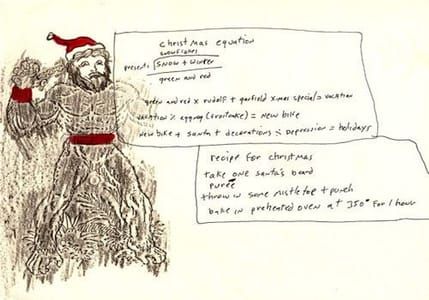 christmas equation
snowflakes
presents √snow + winter
green and red
green and red x rudolf + garfield x-mas special = vacation
vacation % eggnog (fruitcake) = new bike
new bike + santa + decorations ÷ depression = holidays
recipe for christmas
take one santa's beard
pureé
throw in some mistletoe + punch
bake in preheated oven at 350° for 1 hour